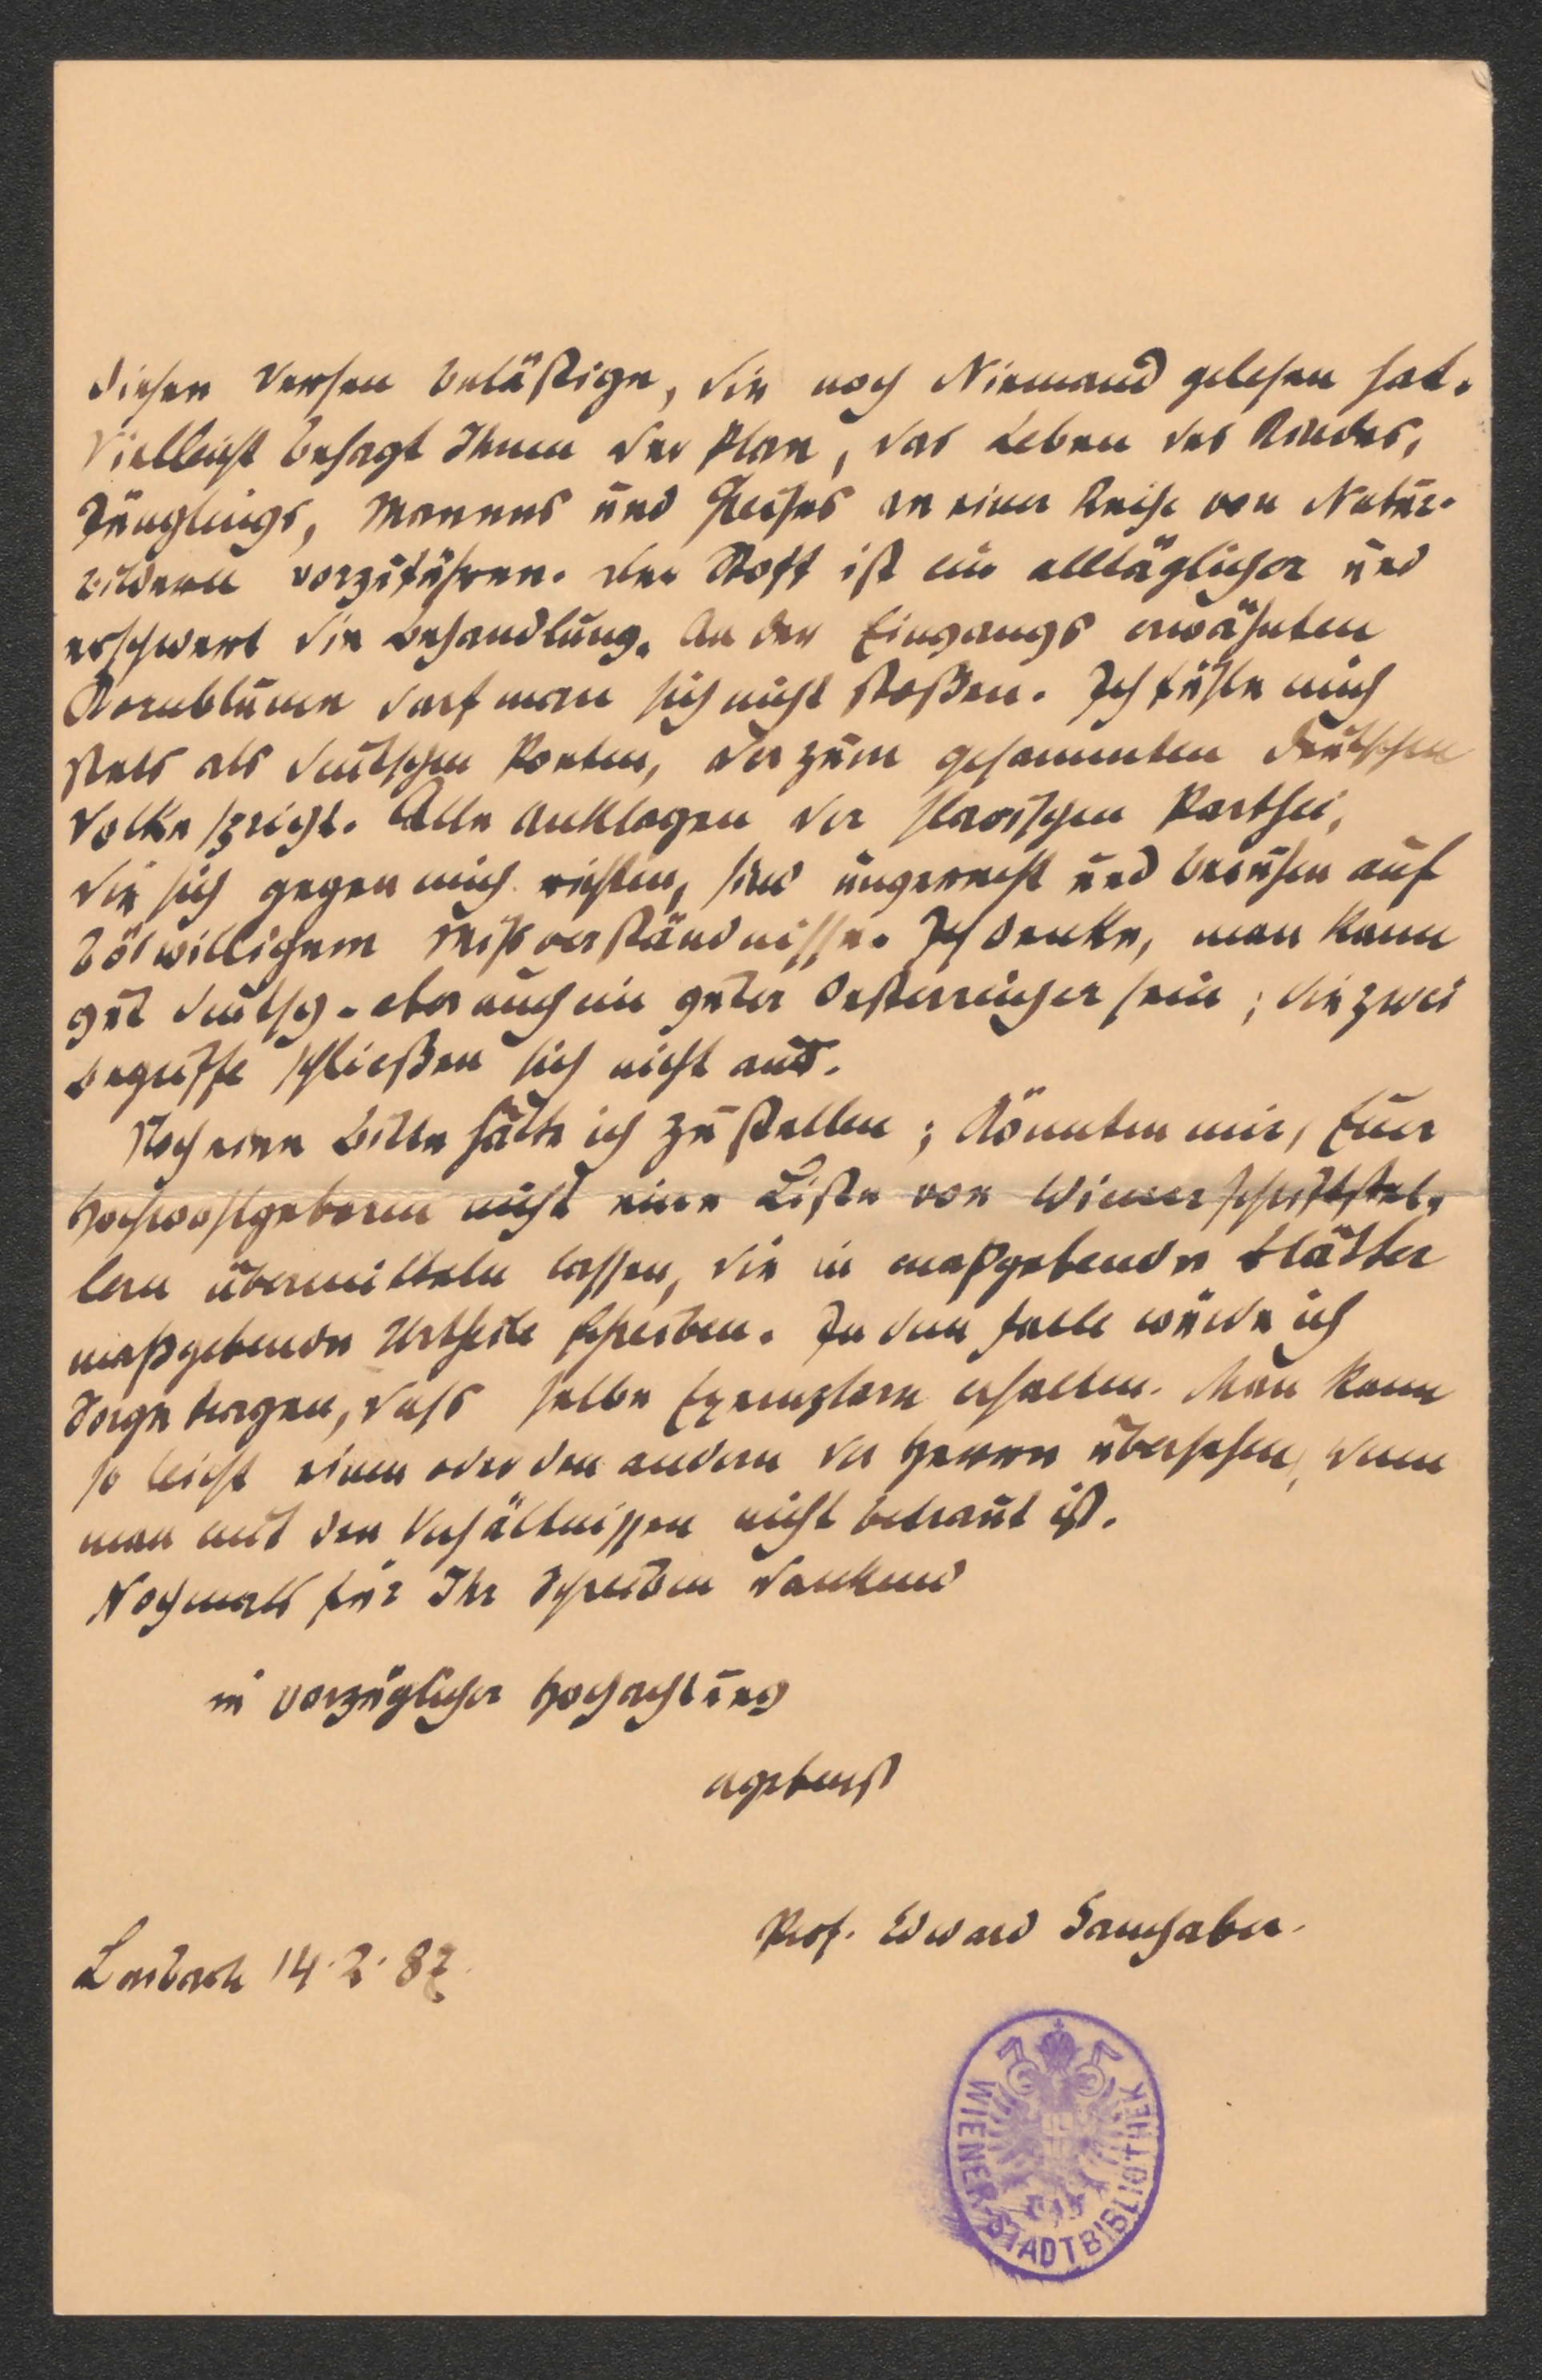 diesen Versen beläßtige, die noch Niemand gelesen hat.
Vielleicht behagt Ihnen der Plan, das Leben des Kindes,
Jünglings, Mannes und Greises an einer Reihe von Natur-
bildern vorzuführen. Der Stoff ist ein alltäglicher und
erschwert die Behandlung. An der Eingangs erwähnten
Kornblume darf man sich nicht stoßen. Ich fühle mich
stets als deutschen Poeten, der zum gesammten deutschen
Volke spricht. Alle Anklagen der slavischen Parthei,
die sich gegen mich richten, sind ungerecht und beruhen auf
böswilligem Mißverständnisse. Ich denke, man kann
gut deutsch - aber auch ein guter Oesterreicher sein; die zwei
Begriffe schließen sich nicht aus.
Noch eine Bitte hätte ich zu stellen; Könnten mir, Euer
Hochwohlgeboren nicht eine Liste von Wiener Schriftstel-
lern übermitteln lassen, die in maßgebende Blätter
maßgebende Urtheile schreiben. In dem Falle würde ich
Sorge tragen, dass selbe Exemplare erhalten. Man kann
so leicht einen oder den andern der Herren übersehen, wenn
man mit den Verhältnissen nicht betraut ist.
Nochmals für Ihr Schreiben dankend
in vorzüglicher Hochachtung
ergebenst
Prof. Edward Samhaber.
Laibach 14.2.87.
WIENER STADTBIBLIOTHEK